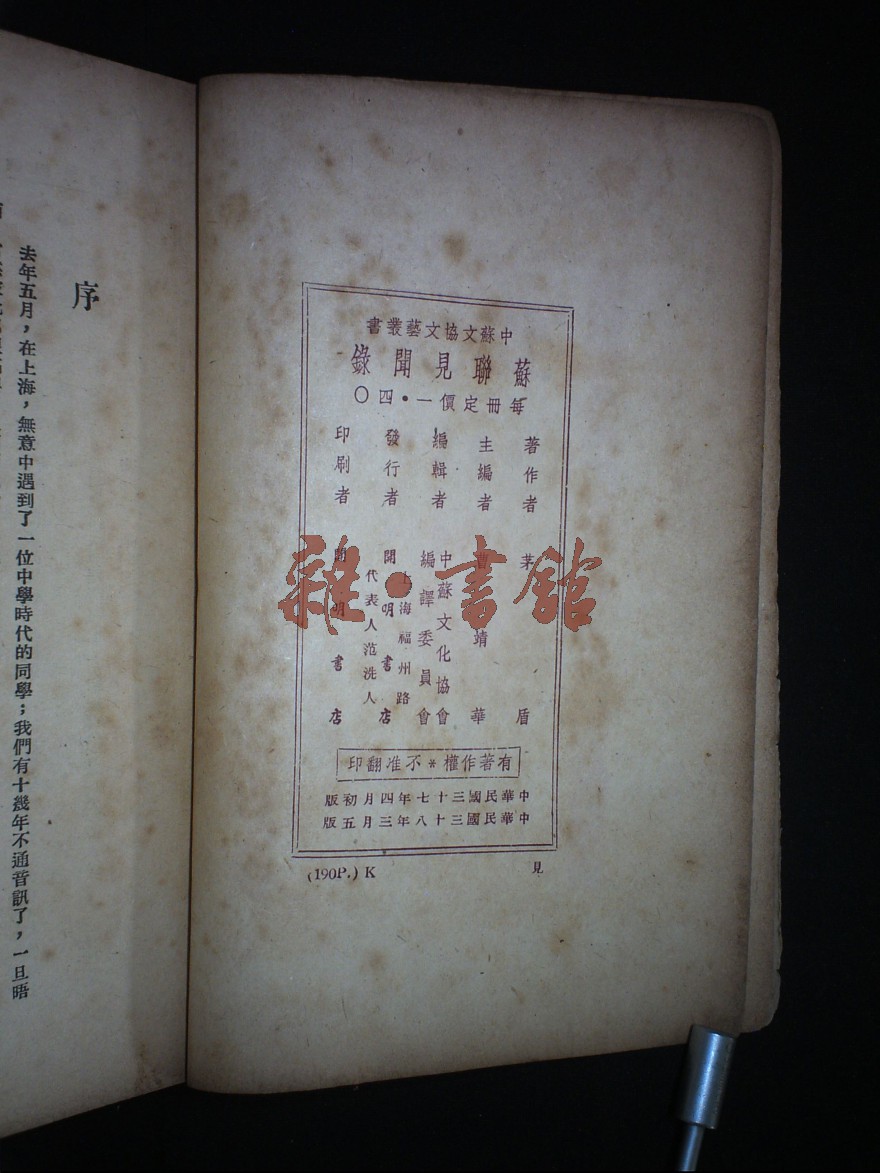 中蘇文協文藝叢書
蘇聯見聞錄
每冊定價一•四〇
著作者 茅盾
主編者 曹靖華
編輯者 中蘇文化協會編譯委員會
發行者 開明書店
上海福州路
代表人范洗人
印刷者 開明書店
有著作權*不准翻印
中華民國三十七年四月初版
中華民國三十八年三月五版
見
(190P.) K
雜·書館
序
去年五月，在上海，無意中遇到了一位中學時代的同學；我們有十幾年不通音訊了，一旦晤